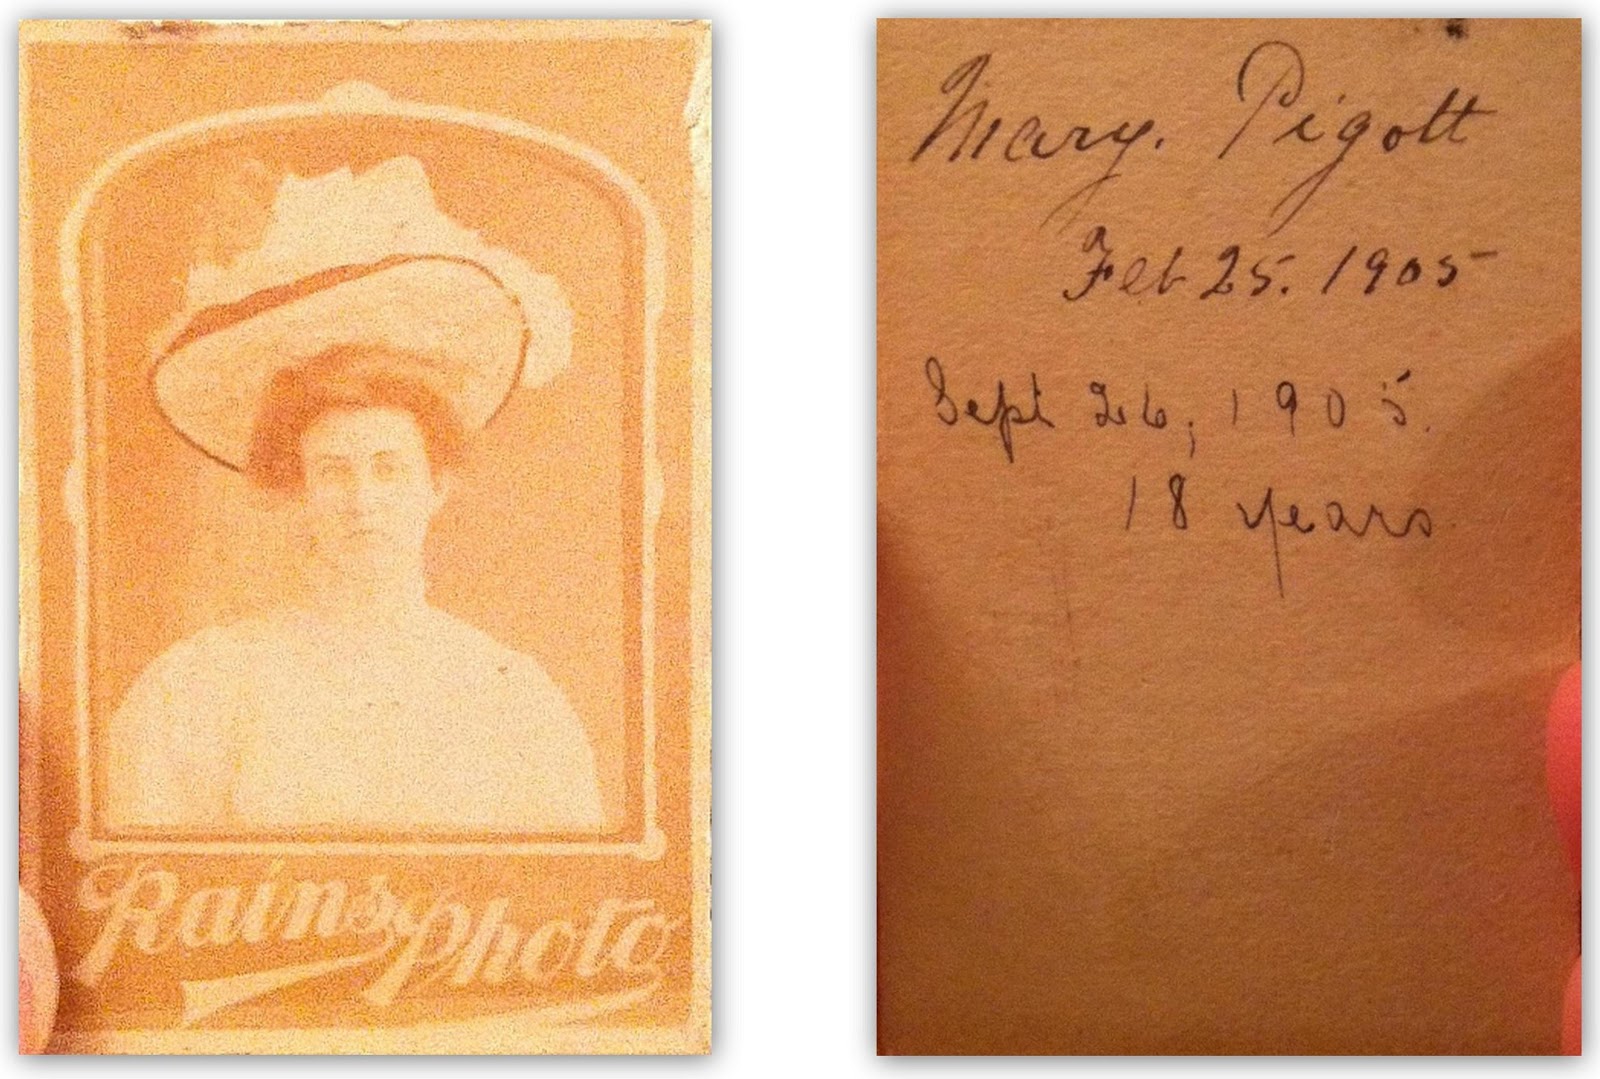 Rains Photo
Mary. Pigott
Feb 25. 1905
Sept 26, 1905.
18 years